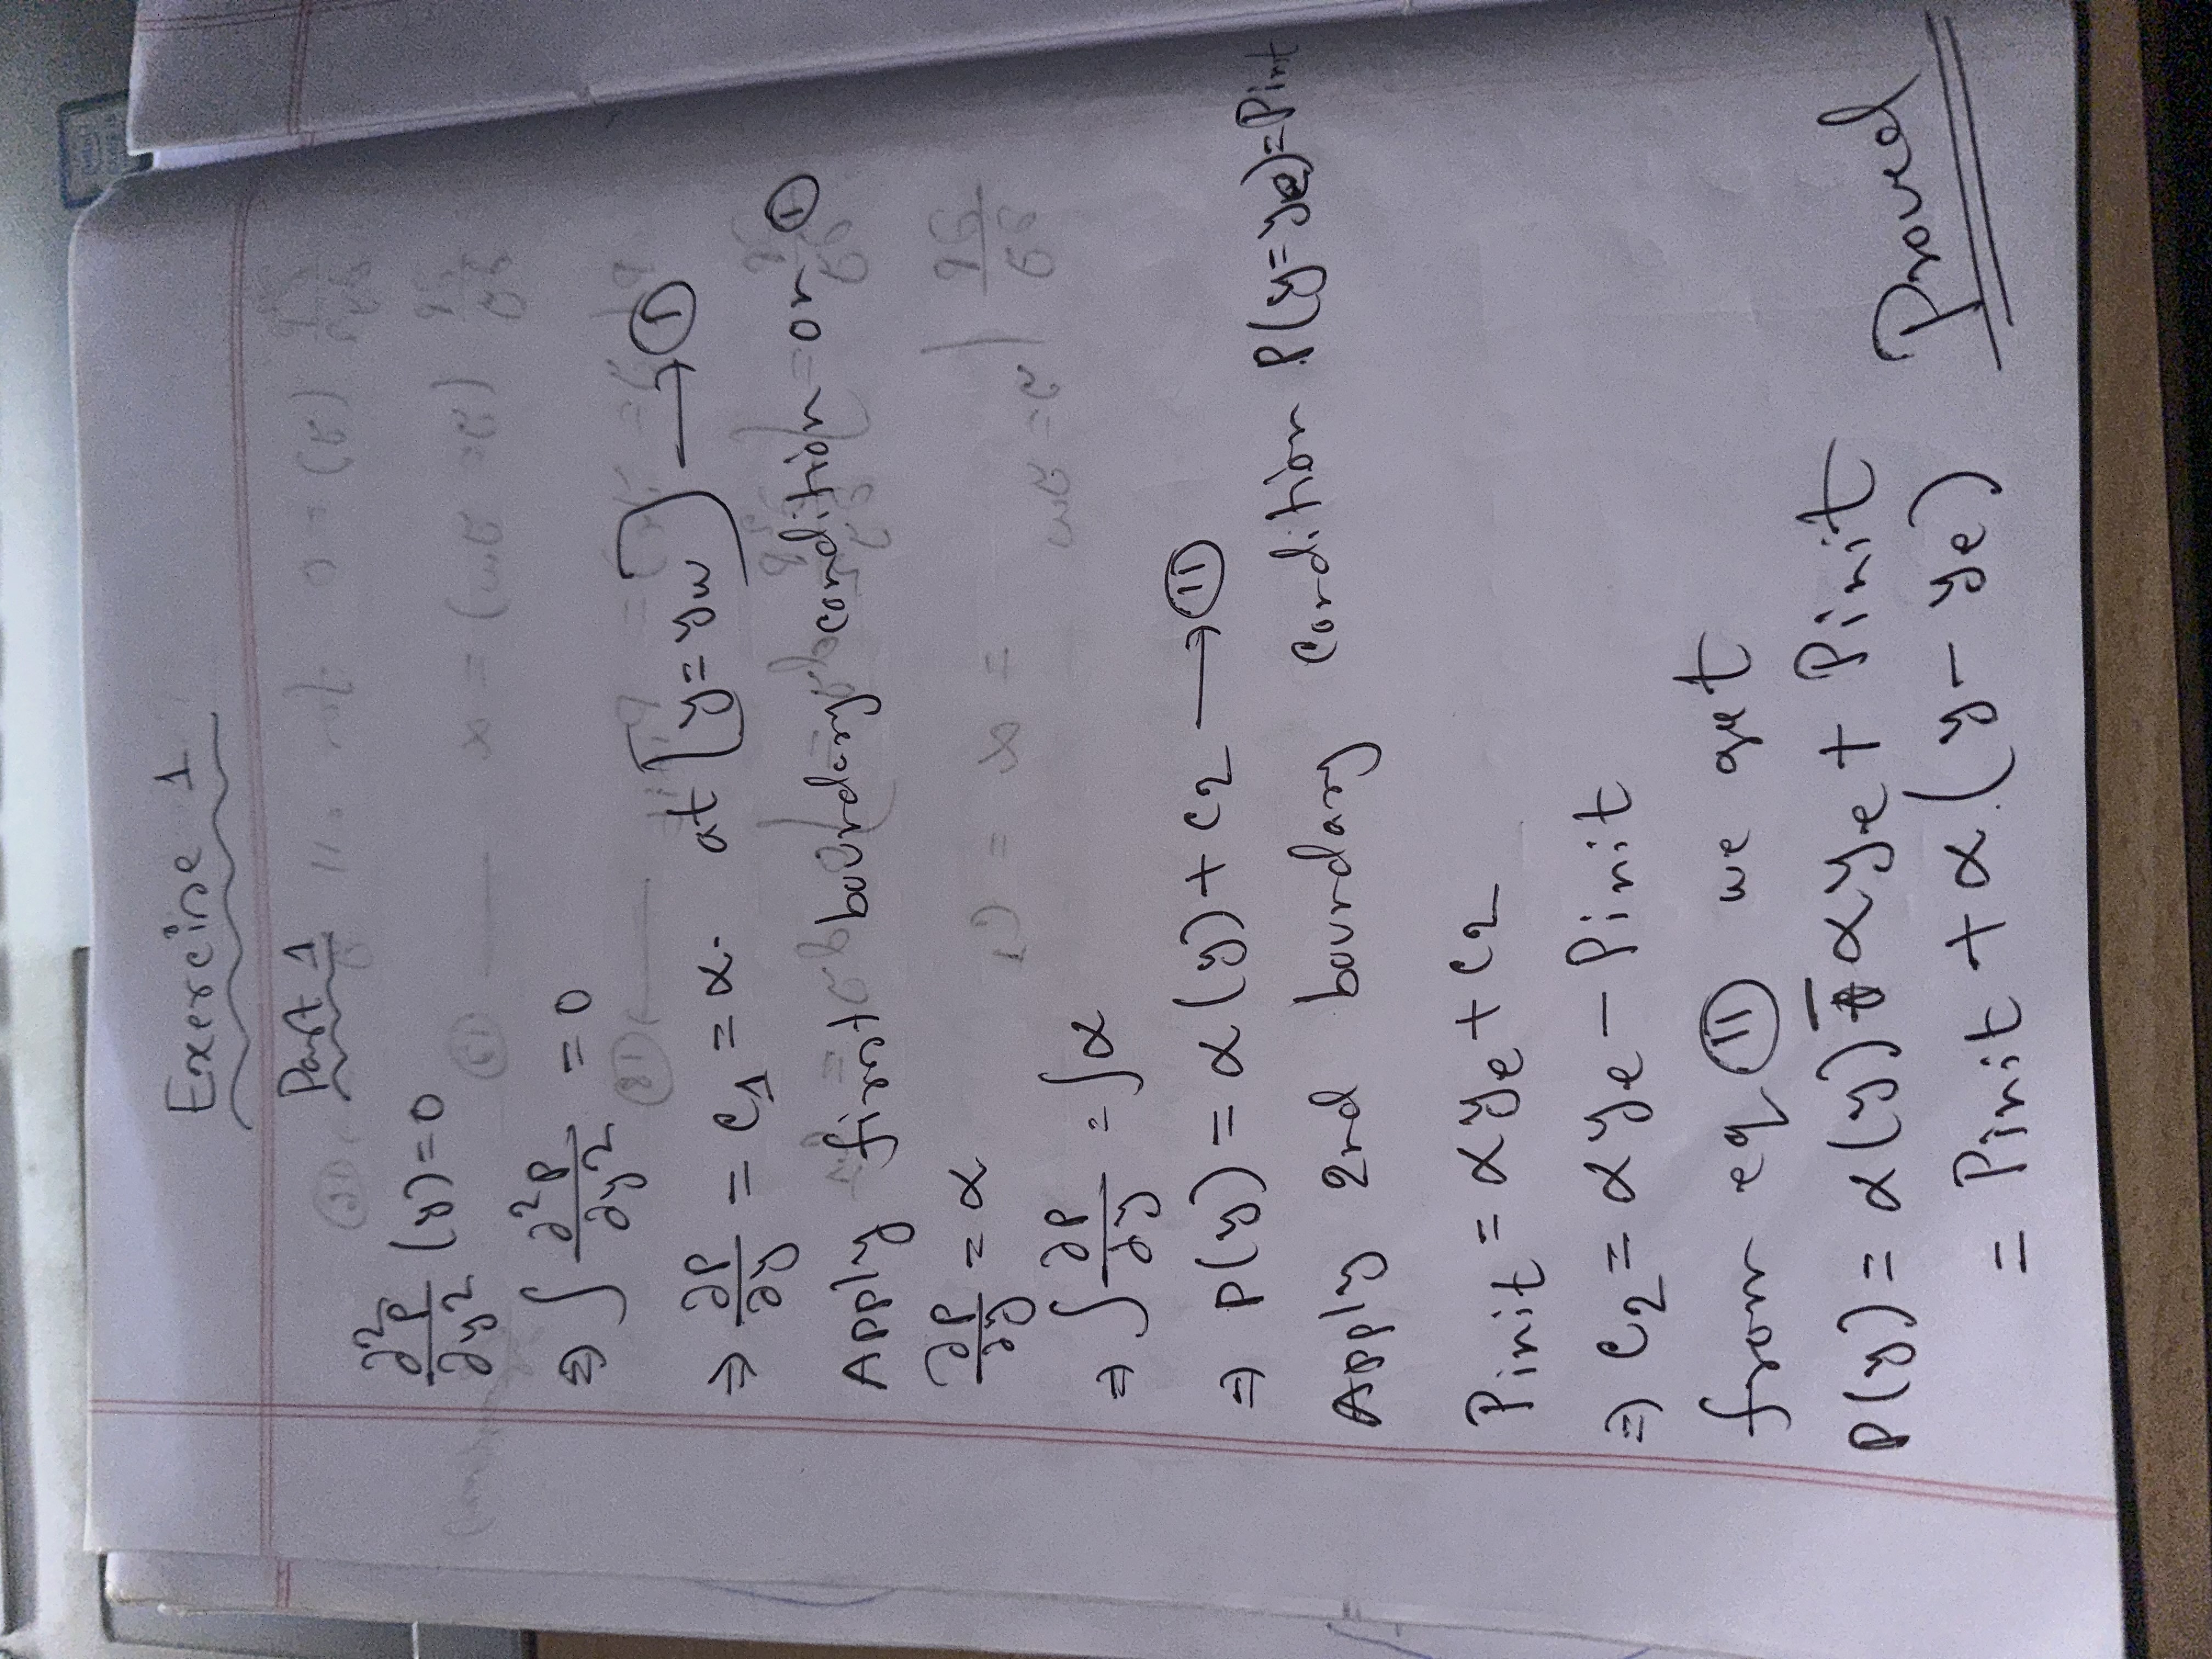 Exercise 1
Part 1
∂²P/∂y² (y) = 0
⇒ ∫ ∂²P/∂y² = 0
⇒ ∂P/∂y = C₁ = α. at [y = yw] → Ⓘ
Apply first boundary condition on Ⓘ
∂P/∂y = α
⇒ ∫ ∂P/∂y = ∫ α
⇒ P(y) = α(y) + C₂ → ⓘⓘ
Apply 2nd boundary condition P(y = ye) = Pinit
Pinit = α ye + C₂
⇒ C₂ = α ye − Pinit
from eq ⓘⓘ we get
P(y) = α(y) − α ye + Pinit
= Pinit + α.(y − ye) Proved